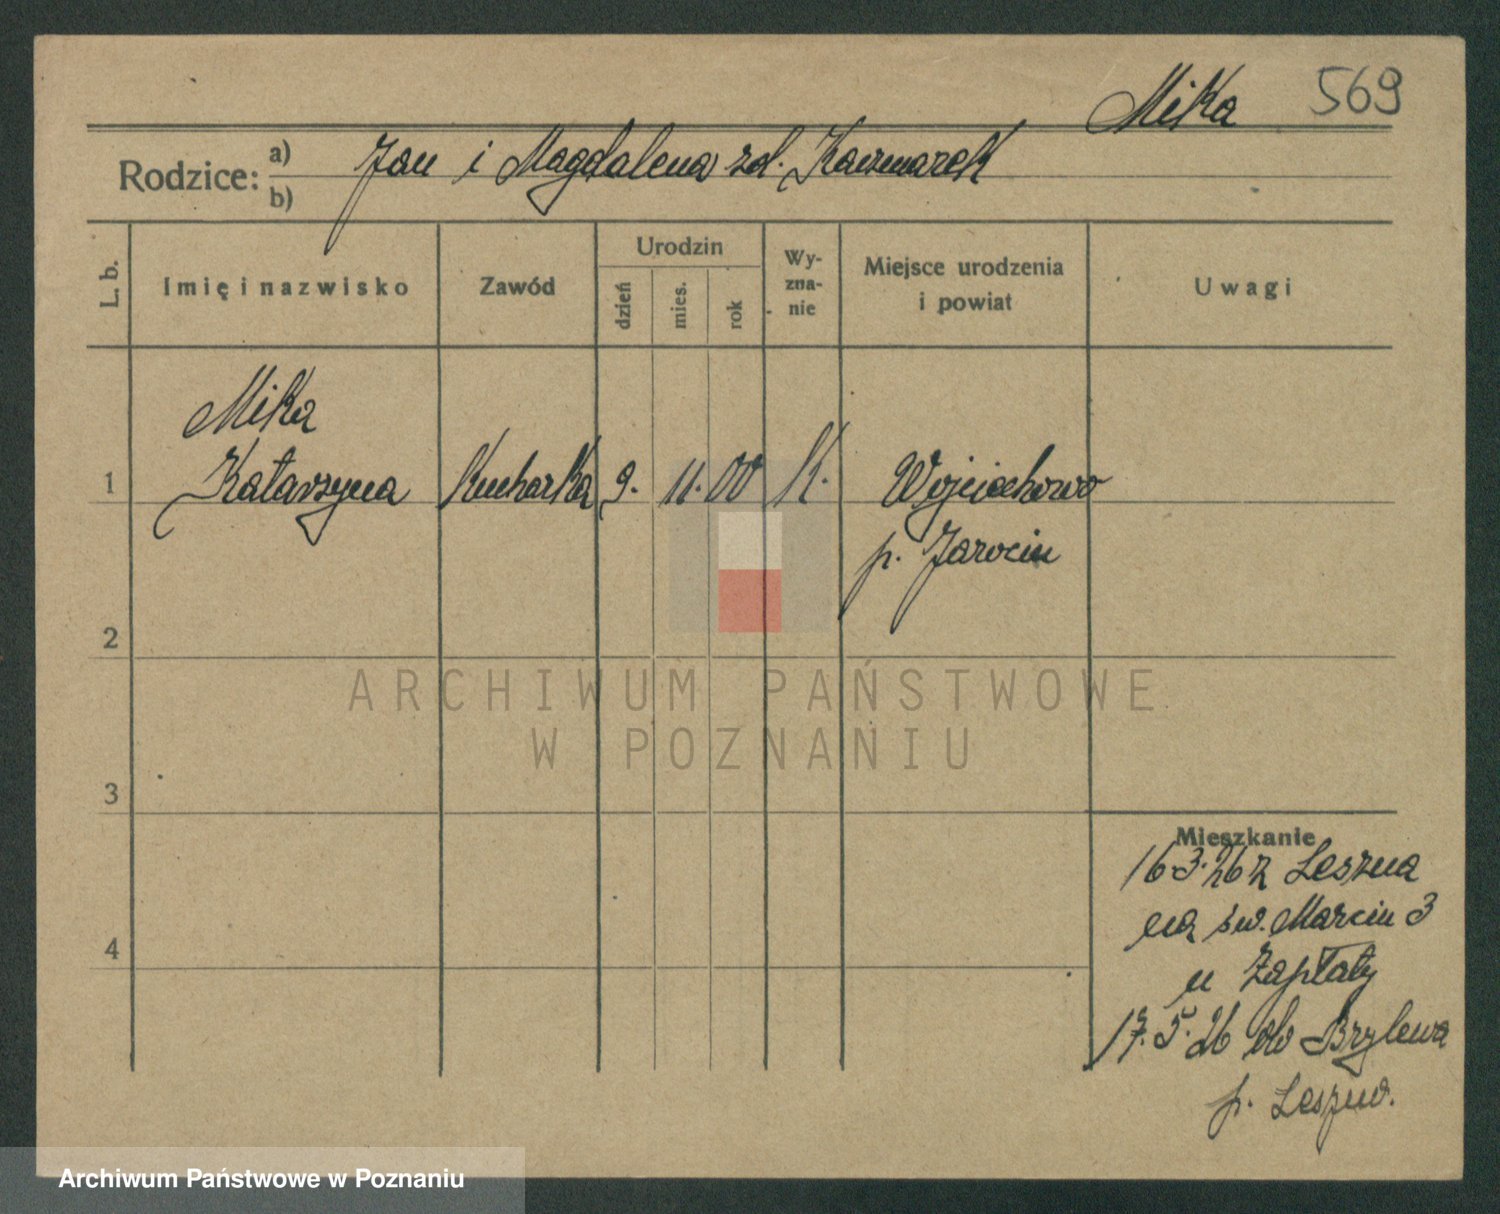 Mika 569
Rodzice: a) b)
Jan i Magdalena zd. Kaczmarek
L. b.
Imię i nazwisko
Zawód
Urodzin
dzień
mies.
rok
Wy-
zna-
nie
Miejsce urodzenia
i powiat
Uwagi
Mika
1 Katarzyna Kucharka 9. 11. 00 K. Wojciechowo
p. Jarocin
2
3
4
Mieszkanie
16.3.26 z Leszna
na św. Marcin 3
u Zapłaty
17.5.26 do Brylewa
p. Leszno.
ARCHIWUM PAŃSTWOWE
W POZNANIU
Archiwum Państwowe w Poznaniu